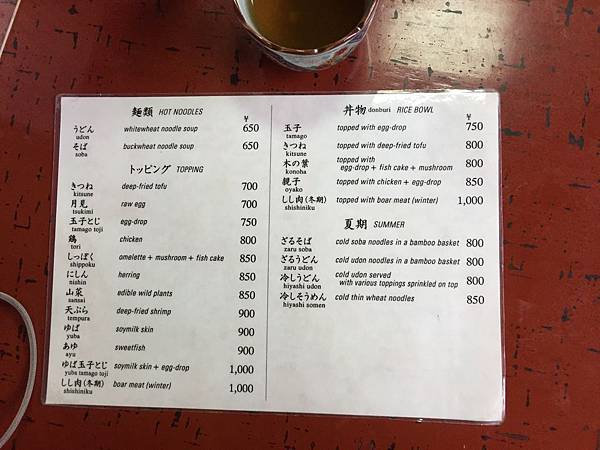 麺類 HOT NOODLES
¥
うどん whitewheat noodle soup 650
udon
そば buckwheat noodle soup 650
soba
トッピング TOPPING
きつね deep-fried tofu 700
kitsune
月見 raw egg 700
tsukimi
玉子とじ egg-drop 750
tamago toji
鶏 chicken 800
tori
しっぽく omelette + mushroom + fish cake 850
shippoku
にしん herring 850
nishin
山菜 edible wild plants 850
sansai
天ぷら deep-fried shrimp 900
tempura
ゆば soymilk skin 900
yuba
あゆ sweetfish 900
ayu
ゆば玉子とじ soymilk skin + egg-drop 1,000
yuba tamago toji
しし肉(冬期) boar meat (winter) 1,000
shishiniku
丼物 donburi RICE BOWL
¥
玉子 topped with egg-drop 750
tamago
きつね topped with deep-fried tofu 800
kitsune
木の葉 topped with
konoha egg-drop + fish cake + mushroom 800
親子 topped with chicken + egg-drop 850
oyako
しし肉(冬期) topped with boar meat (winter) 1,000
shishiniku
夏期 SUMMER
ざるそば cold soba noodles in a bamboo basket 800
zaru soba
ざるうどん cold udon noodles in a bamboo basket 800
zaru udon
冷しうどん cold udon served
hiyashi udon with various toppings sprinkled on top 800
冷しそうめん cold thin wheat noodles 850
hiyashi somen